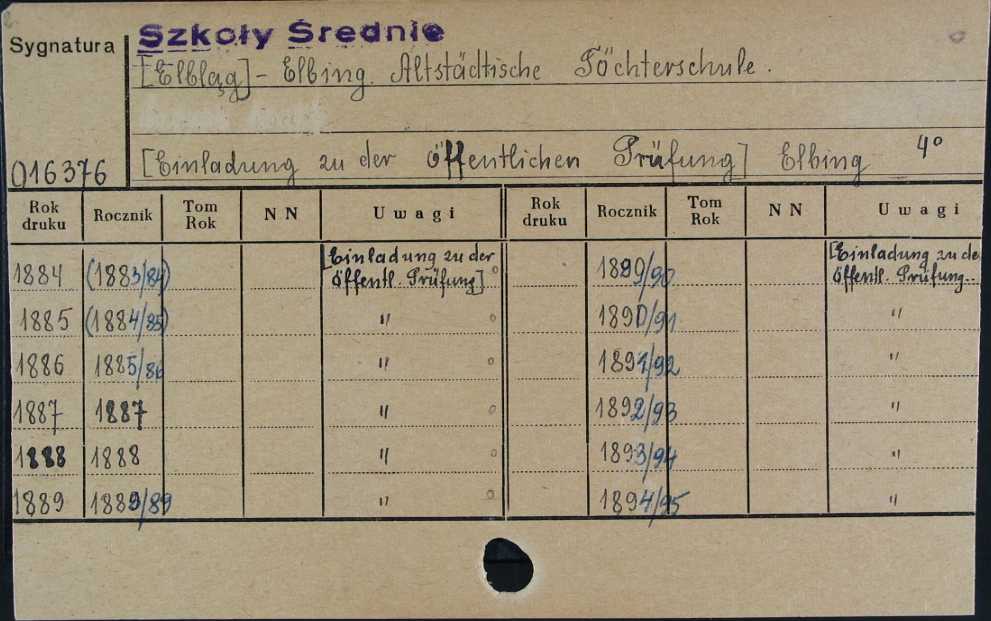 Szkoły Średnie
Sygnatura
[Elbląg] - Elbing. Altstädtische Töchterschule.
[Einladung zu der öffentlichen Prüfung] Elbing 4°
016376
Rok druku Rocznik Tom Rok NN Uwagi Rok druku Rocznik Tom Rok NN Uwagi
1884 (1883/84) [Einladung zu der öffentl. Prüfung] 1889/90 [Einladung zu de öffentl. Prüfung..
1885 (1884/85) " 1890/91 "
1886 1885/86 " 1891/92 "
1887 1887 " 1892/93 "
1888 1888 " 1893/94 "
1889 1889/89 " 1894/95 "